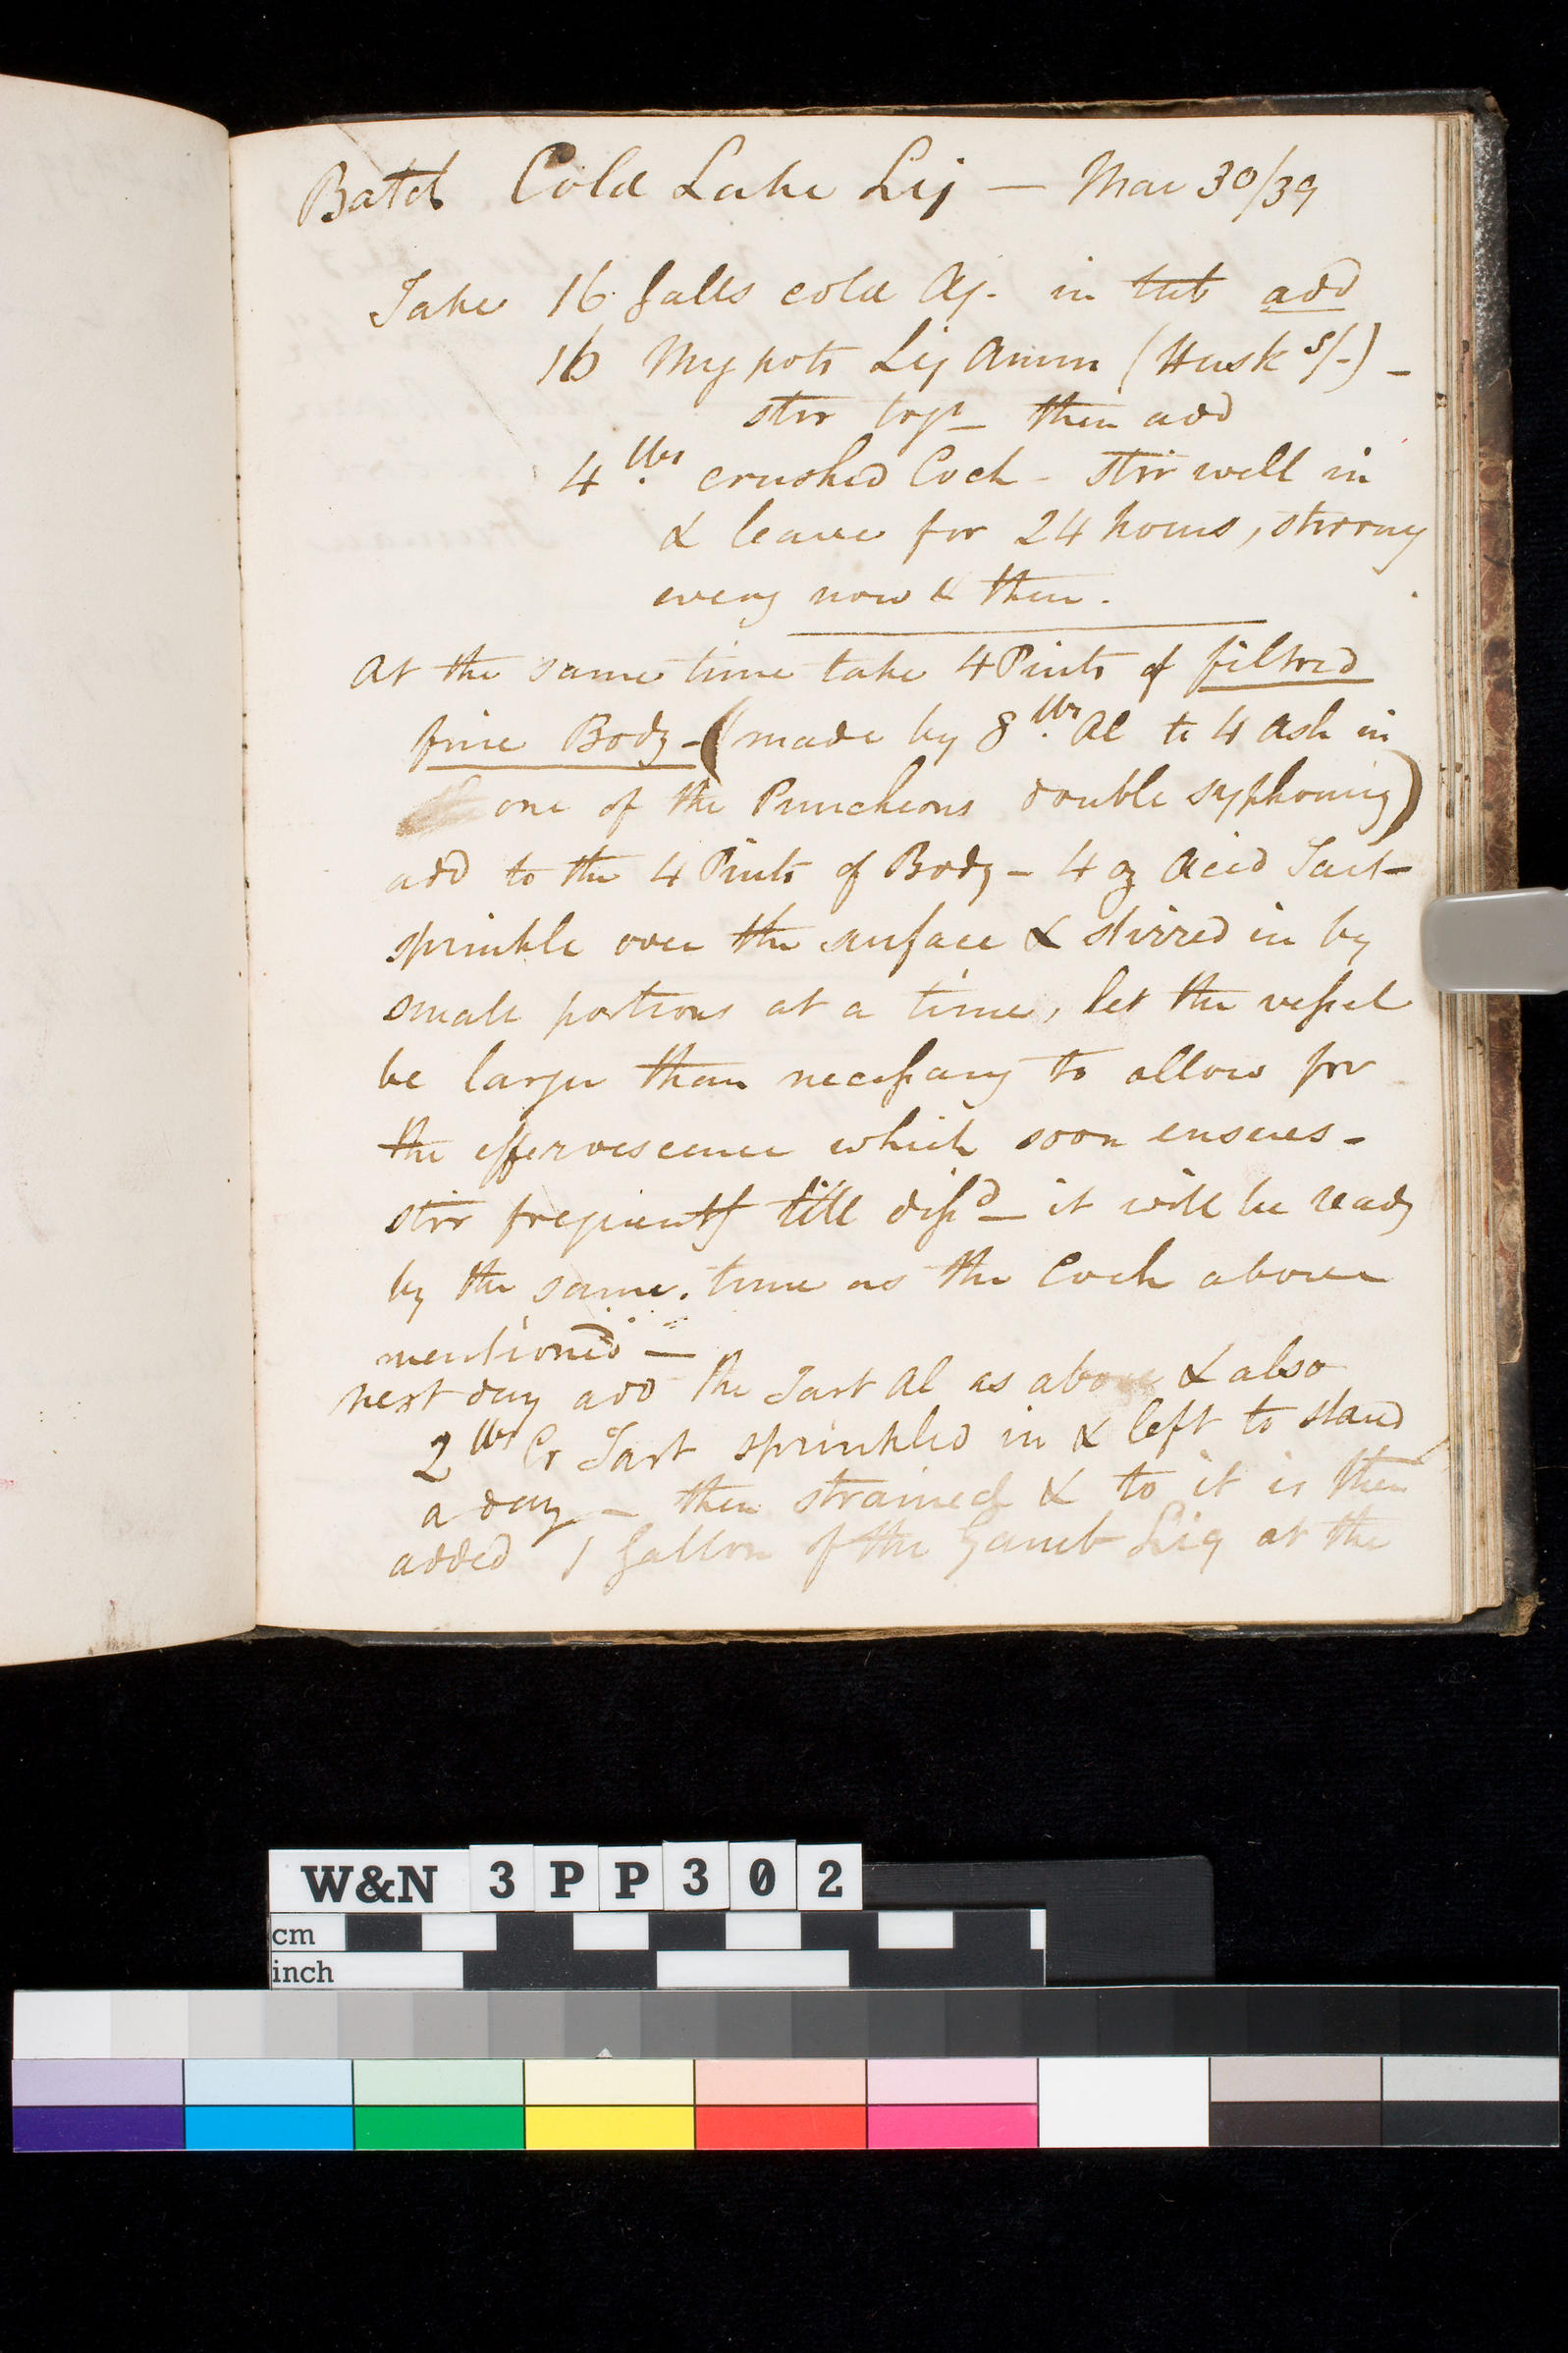 Batch Cold Lake Liq — Mar 30/39
Take 16 Galls cold Aq. in tub add
16 My pots Liq Amm (Husk s/-) -
stir togr then add
4 lbs crushed Coch - stir well in
& leave for 24 hours, stirring
every now & then.
At the same time take 4 Pints of filtred
fine Body - (made by 8 lbs Al to 4 Ash in
one of the Puncheons double syphoning)
add to the 4 Pints of Body - 4 oz Acid Tart -
sprinkle over the surface & stirred in by
small portions at a time, let the vessel
be larger than necessary to allow for
the effervescence which soon ensues -
stir frequently till dissd - it will be ready
by the same time as the Coch above
mentioned —
next day add the Tart Al as above & also
2 lbs Cr Tart sprinkled in & left to stand
a day - then strained & to it is then
added 1 Gallon of the Gamb Liq at the
W&N 3PP302
cm
inch